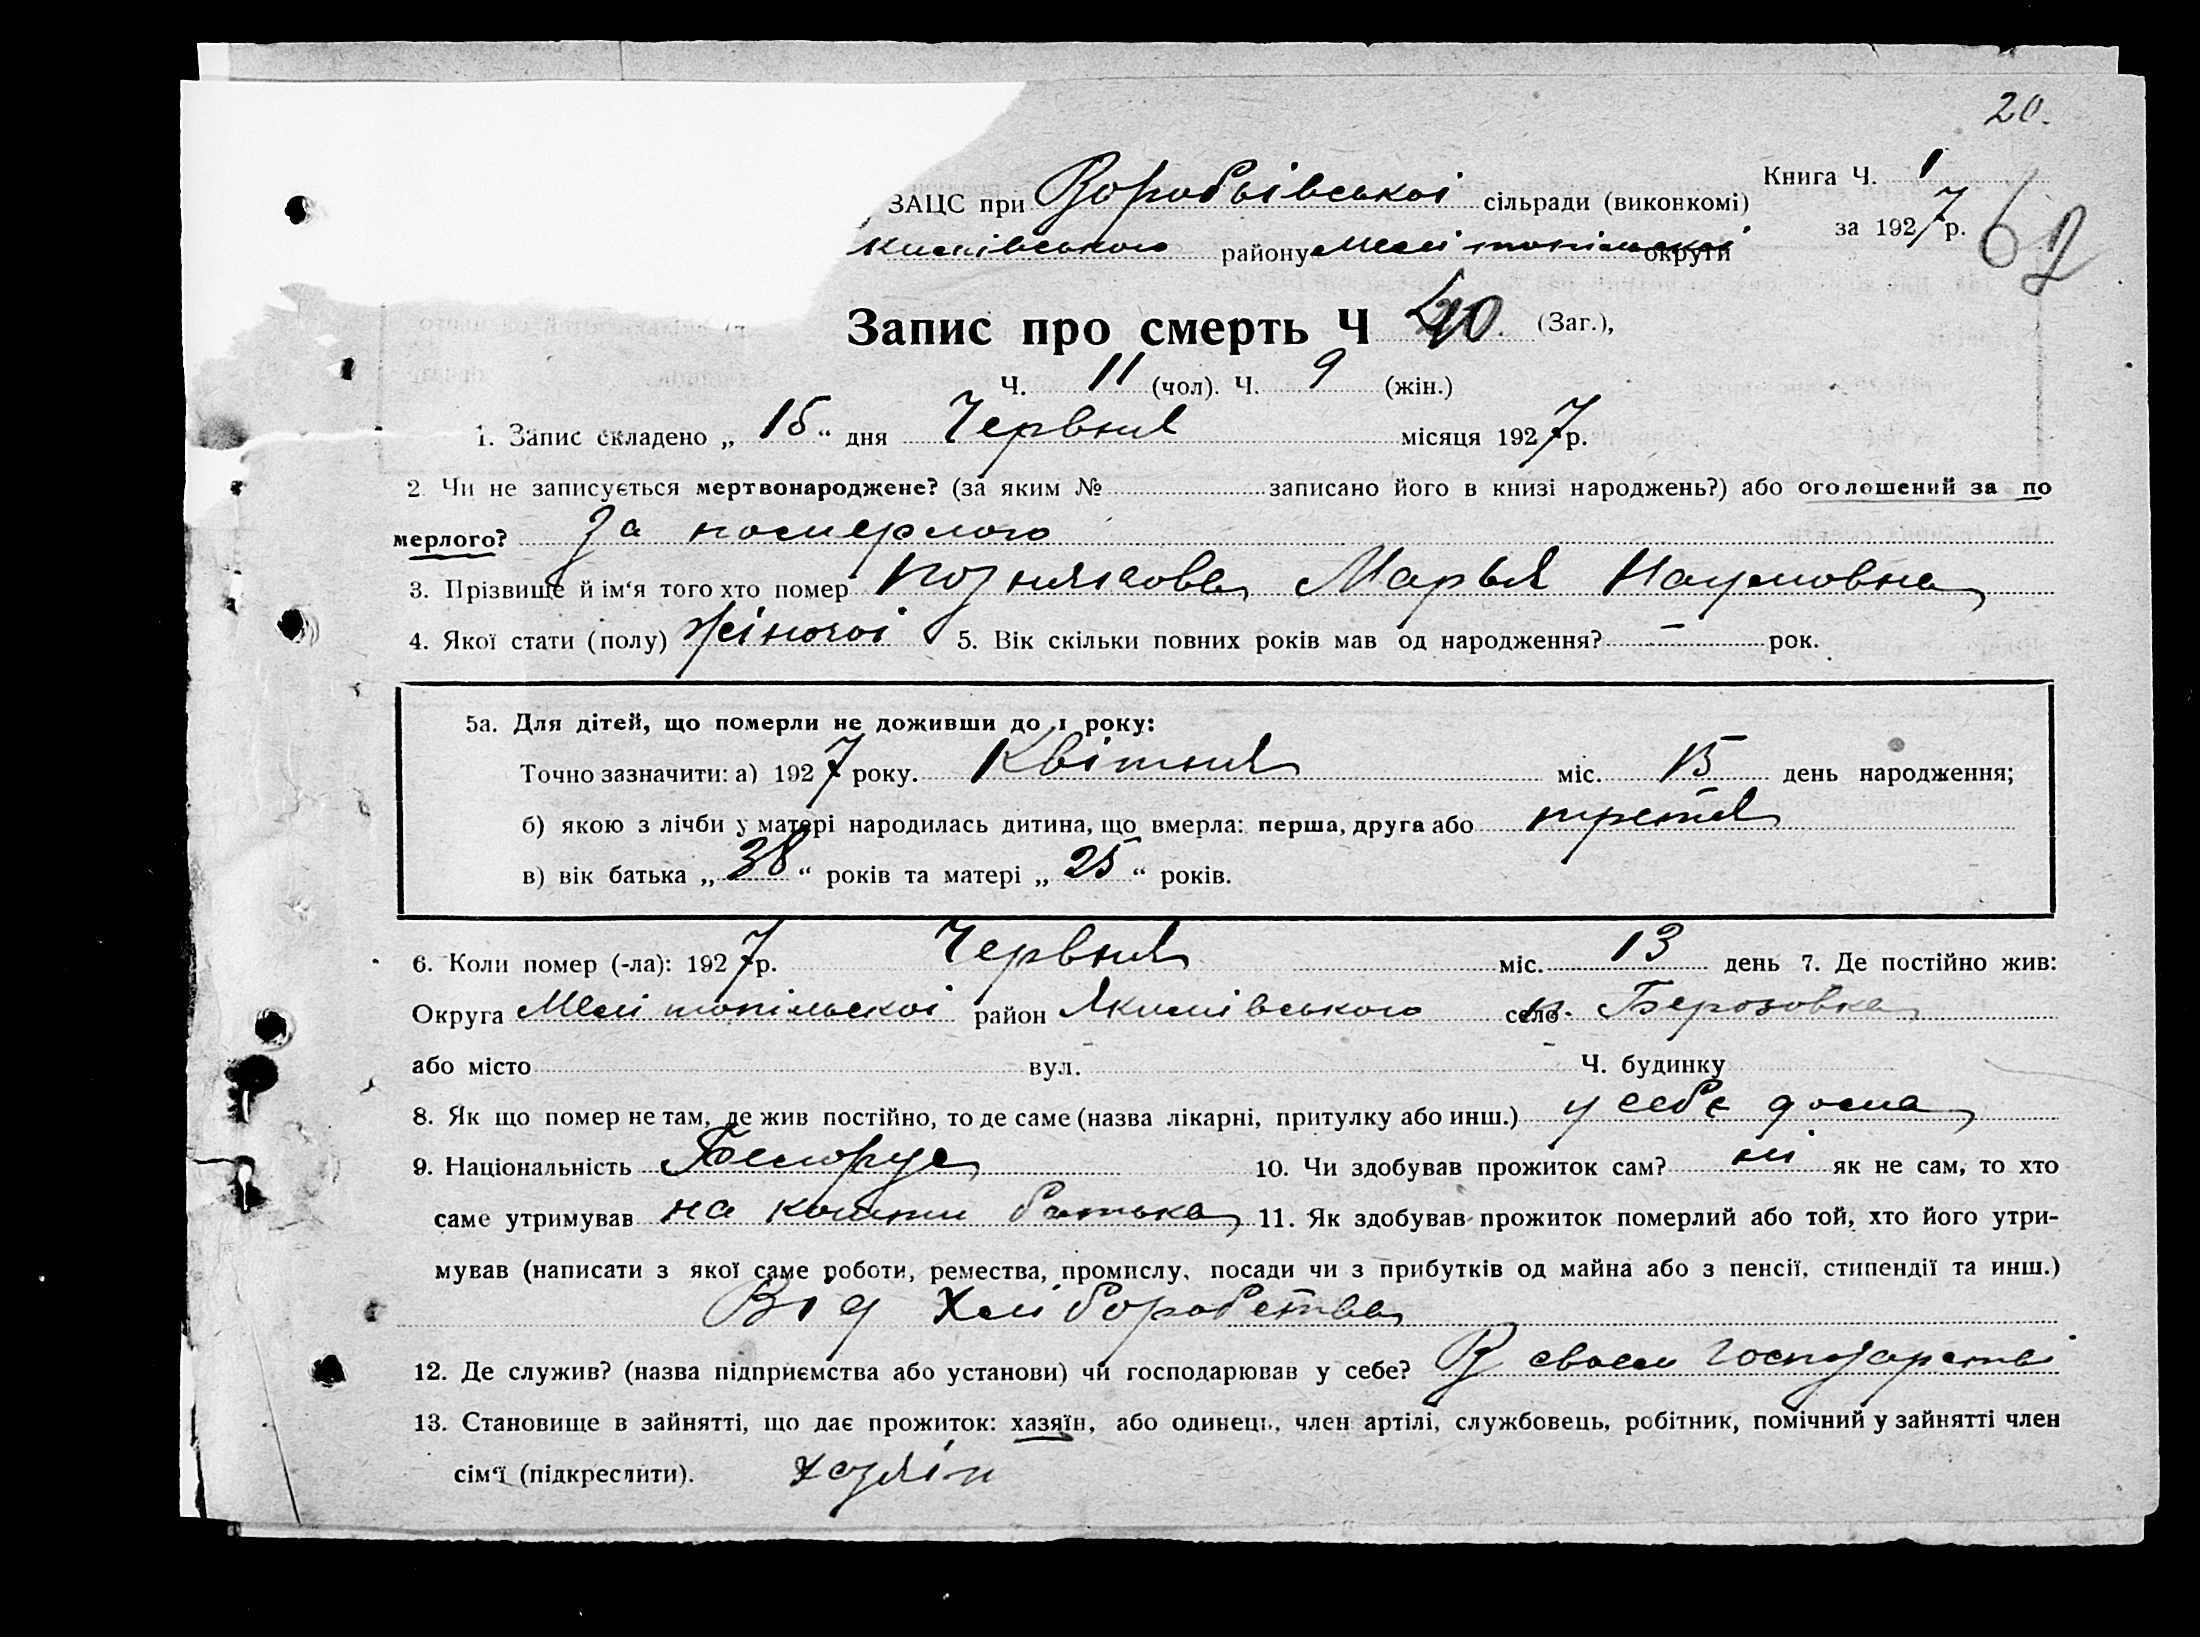 20.
Книга Ч. 1
ЗАЦС при Воробьівськоі сільради (виконкомі)
за 1927 р. 62
кимівського району Мелітопільскоі округи
Запис про смерть Ч 20. (Заг.),
Ч. 11 (чол). Ч. 9 (жін.)
1. Запис складено „ 15 “ дня Червня місяця 1927 р.
2. Чи не записується мертвонароджене? (за яким № записано його в книзі народжень?) або оголошений за по
мерлого? За померлого
3. Прізвище й ім‘я того хто помер Познякова Марья Наумовна
4. Якої стати (полу) жіночоі 5. Вік скільки повних років мав од народження? – рок.
5а. Для дітей, що померли не доживши до 1 року:
Точно зазначити: а) 1927 року. Квітня міс. 15 день народження;
б) якою з лічби у матері народилась дитина, що вмерла: перша, друга або третя
в) вік батька „ 38 “ років та матері „ 25 “ років.
6. Коли помер (-ла): 1927 р. Червня міс. 13 день 7. Де постійно жив:
Округа Мелітопільскоі район Якимівського село Берозовка
або місто вул. – Ч. будинку –
8. Як що помер не там, де жив постійно, то де саме (назва лікарні, притулку або инш.) у себе дома
9. Національність Белорус 10. Чи здобував прожиток сам? ні як не сам, то хто
саме утримував на кошти батька 11. Як здобував прожиток померлий або той, хто його утри-
мував (написати з якої саме роботи, ремества, промислу, посади чи з прибутків од майна або з пенсії, стипендії та инш.)
Від Хліборобства
12. Де служив? (назва підприємства або установи) чи господарював у себе? В своем господарстві
13. Становище в зайнятті, що дає прожиток: хазяїн, або одинець, член артілі, службовець, робітник, помічний у зайнятті член
сім‘ї (підкреслити). хазяін